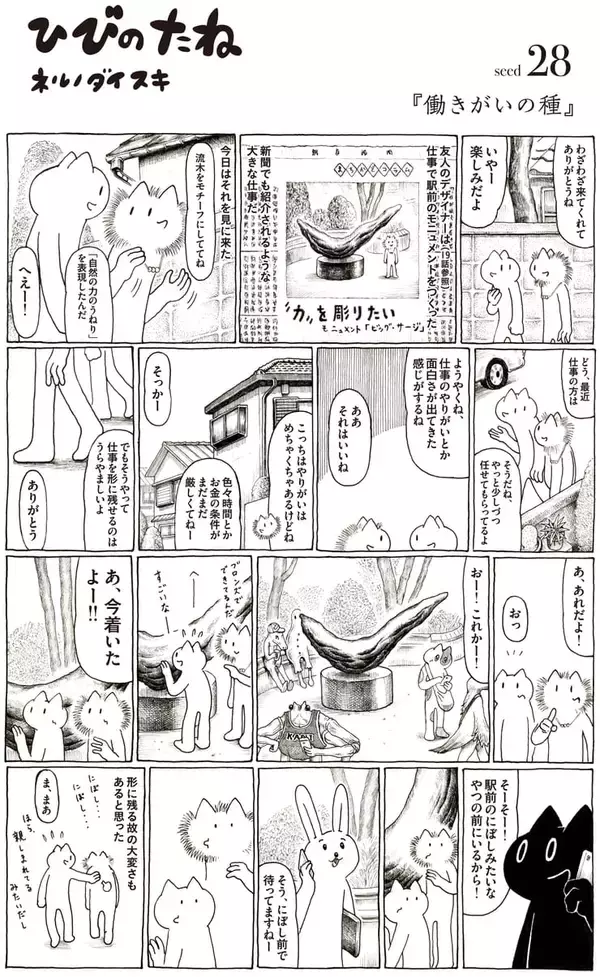 ひびのたね
ネルノダイスキ
seed 28
『働きがいの種』
わざわざ来てくれて
ありがとうね
いやー
楽しみだよ
友人のデザイナーは(19話参照)
仕事で駅前のモニュメントをつくった
"力"を彫りたい
モニュメント「ビッグ・サージ」
新聞でも紹介されるような
大きな仕事だ
今日はそれを見に来た
流木をモチーフにしててね
「自然の力のうねり」
を表現したんだ
へえー!
どう、最近
仕事の方は
そうだね、
やっと少しづつ
任せてもらってるよ
ようやくね、
仕事のやりがいとか
面白さが出てきた
感じがするね
ああ
それはいいね
こっちはやりがいは
めちゃくちゃあるけどね
色々時間とか
お金の条件が
まだまだ
厳しくてねー
そっかー
でもそうやって
仕事を形に残せるのは
うらやましいよ
ありがとう
あ、あれだよ!
おっ
おー!これかー!
KAMI
ブロンズで
できてるんだ
へー
すごいなー
あ、今着いた
よー!!
そーそー!
駅前のにぼしみたいな
やつの前にいるから!
そう、にぼし前で
待ってますねー
形に残る故の大変さも
あると思った
にぼし…
にぼし…
ま、まあ
ほら、
親しまれてる
みたいだし